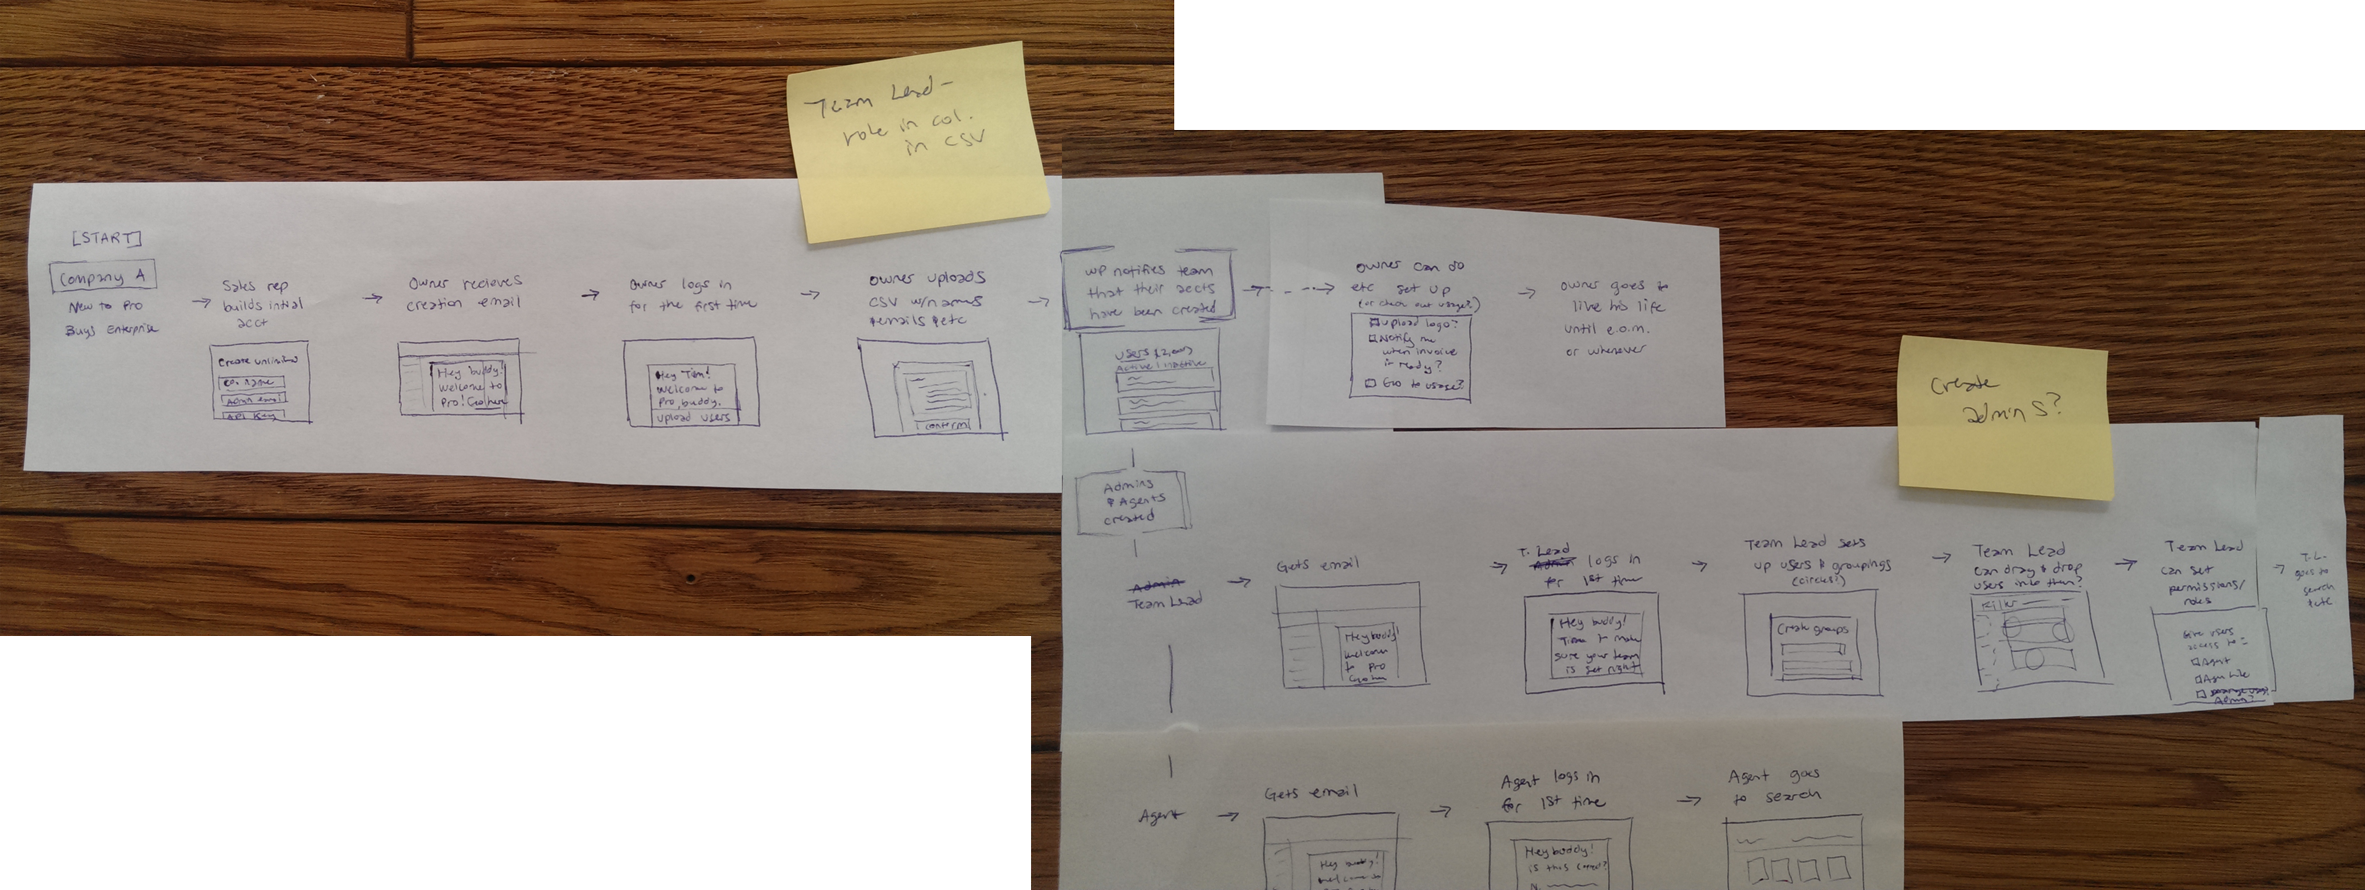 Team Lead -
role in col.
in CSV
[START]
Company A
New to Pro
Buys Enterprise
Sales rep
builds intial
acct
Create unlimited
co. name
Admin email
API Key
Owner recieves
creation email
Hey buddy!
Welcome to
Pro! Go here
Owner logs in
for the first time
Hey Tim!
Welcome to
Pro, buddy.
Upload users
Owner uploads
CSV w/names
& emails & etc
confirm
WP notifies team
that their accts
have been created
Users
Active | Inactive
Owner can do
etc set up
(or check out usage?)
Upload logo?
Notify me
when invoice
is ready?
Go to usage?
Owner goes to
live his life
until e.o.m.
or whenever
Create
admins?
Admins
& Agents
created
Admin
Team Lead
Gets email
Hey buddy!
Welcome
to Pro
Go here
T. Lead
Admin logs in
for 1st time
Hey buddy!
Time to make
sure your team
is set right
Team Lead sets
up users & groupings
(circus?)
Create groups
Team Lead
can drag & drop
users into them?
Filter
Team Lead
can set
permissions/
roles
Give users
access to:
Agent
Admin?
T.L.
goes to
search
Agent
Gets email
Hey buddy!
Welcome to
Agent logs in
for 1st time
Hey buddy!
is this correct?
N.
Agent goes
to search